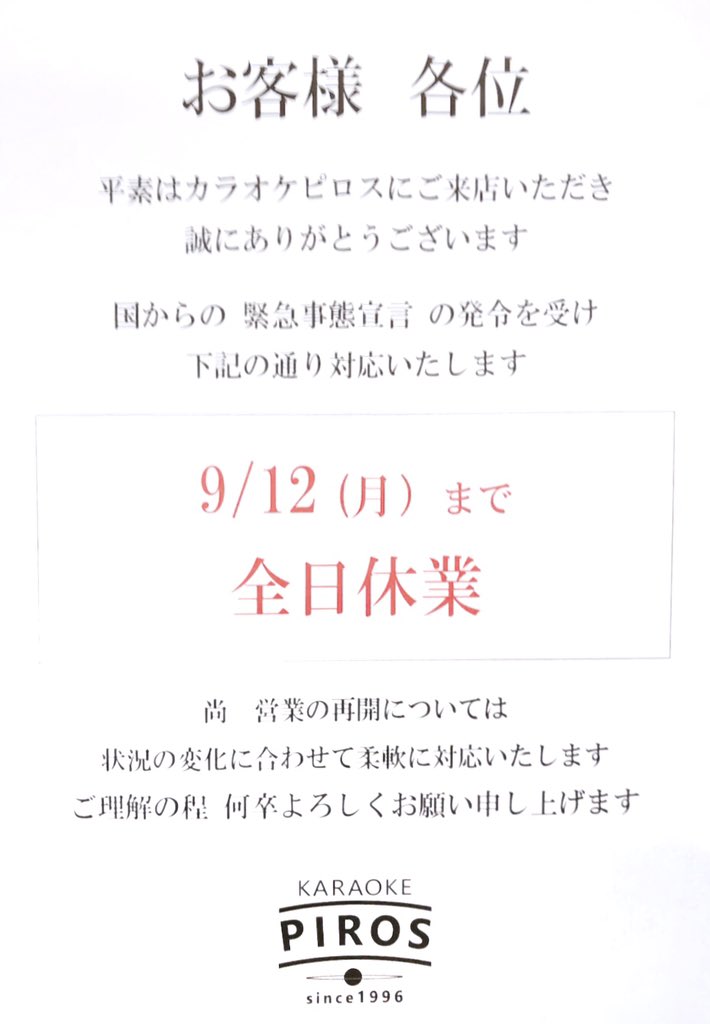 お客様 各位
平素はカラオケピロスにご来店いただき
誠にありがとうございます
国からの 緊急事態宣言 の発令を受け
下記の通り対応いたします
9/12 (月) まで
全日休業
尚 営業の再開については
状況の変化に合わせて柔軟に対応いたします
ご理解の程 何卒よろしくお願い申し上げます
KARAOKE
PIROS
since1996